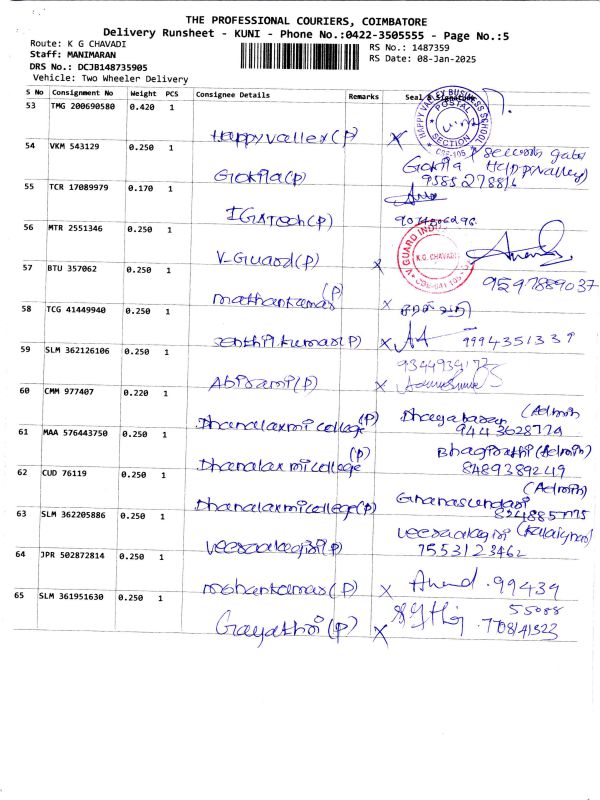 THE PROFESSIONAL COURIERS, COIMBATORE
Delivery Runsheet - KUNI - Phone No.:0422-3505555 - Page No.:5
Route: K G CHAVADI
RS No.: 1487359
Staff: MANIMARAN
RS Date: 08-Jan-2025
DRS No.: DCJB148735905
Vehicle: Two Wheeler Delivery
S No Consignment No Weight PCS Consignee Details Remarks Seal & Signature
53 TMG 200690580 0.420 1
HAPPY VALLEY BUSINESS SCHOOL
POSTAL
SECTION
CBE-105
Happyvalley(P) x
54 VKM 543129 0.250 1
Gokila(P) Gokila
9585278816
55 TCR 17089979 0.170 1
IGATech(P)
56 MTR 2551346 0.250 1
V-Guard(P) x
V GUARD IND
K.G. CHAVADI
9597889037
57 BTU 357062 0.250 1
mathankumar (P) x
58 TCG 41449940 0.250 1
Senthil kumar(P) x 9994351339
59 SLM 362126106 0.250 1
Abirami(P) x
60 CMM 977407 0.220 1
Dhanalaxmi college (P) (Admin
61 MAA 576443750 0.250 1
Dhanalaxmi college (P) Bhagirathi (Admin)
62 CUD 76119 0.250 1
Dhanalaxmi college(P) Gnanasundari (Admin)
63 SLM 362205886 0.250 1
veeraalagiri(P) veeraalagiri
7553123462
64 JPR 502872814 0.250 1
mohankumar(P) x Anend . 99439
55088
65 SLM 361951630 0.250 1
Gayathri (P) x